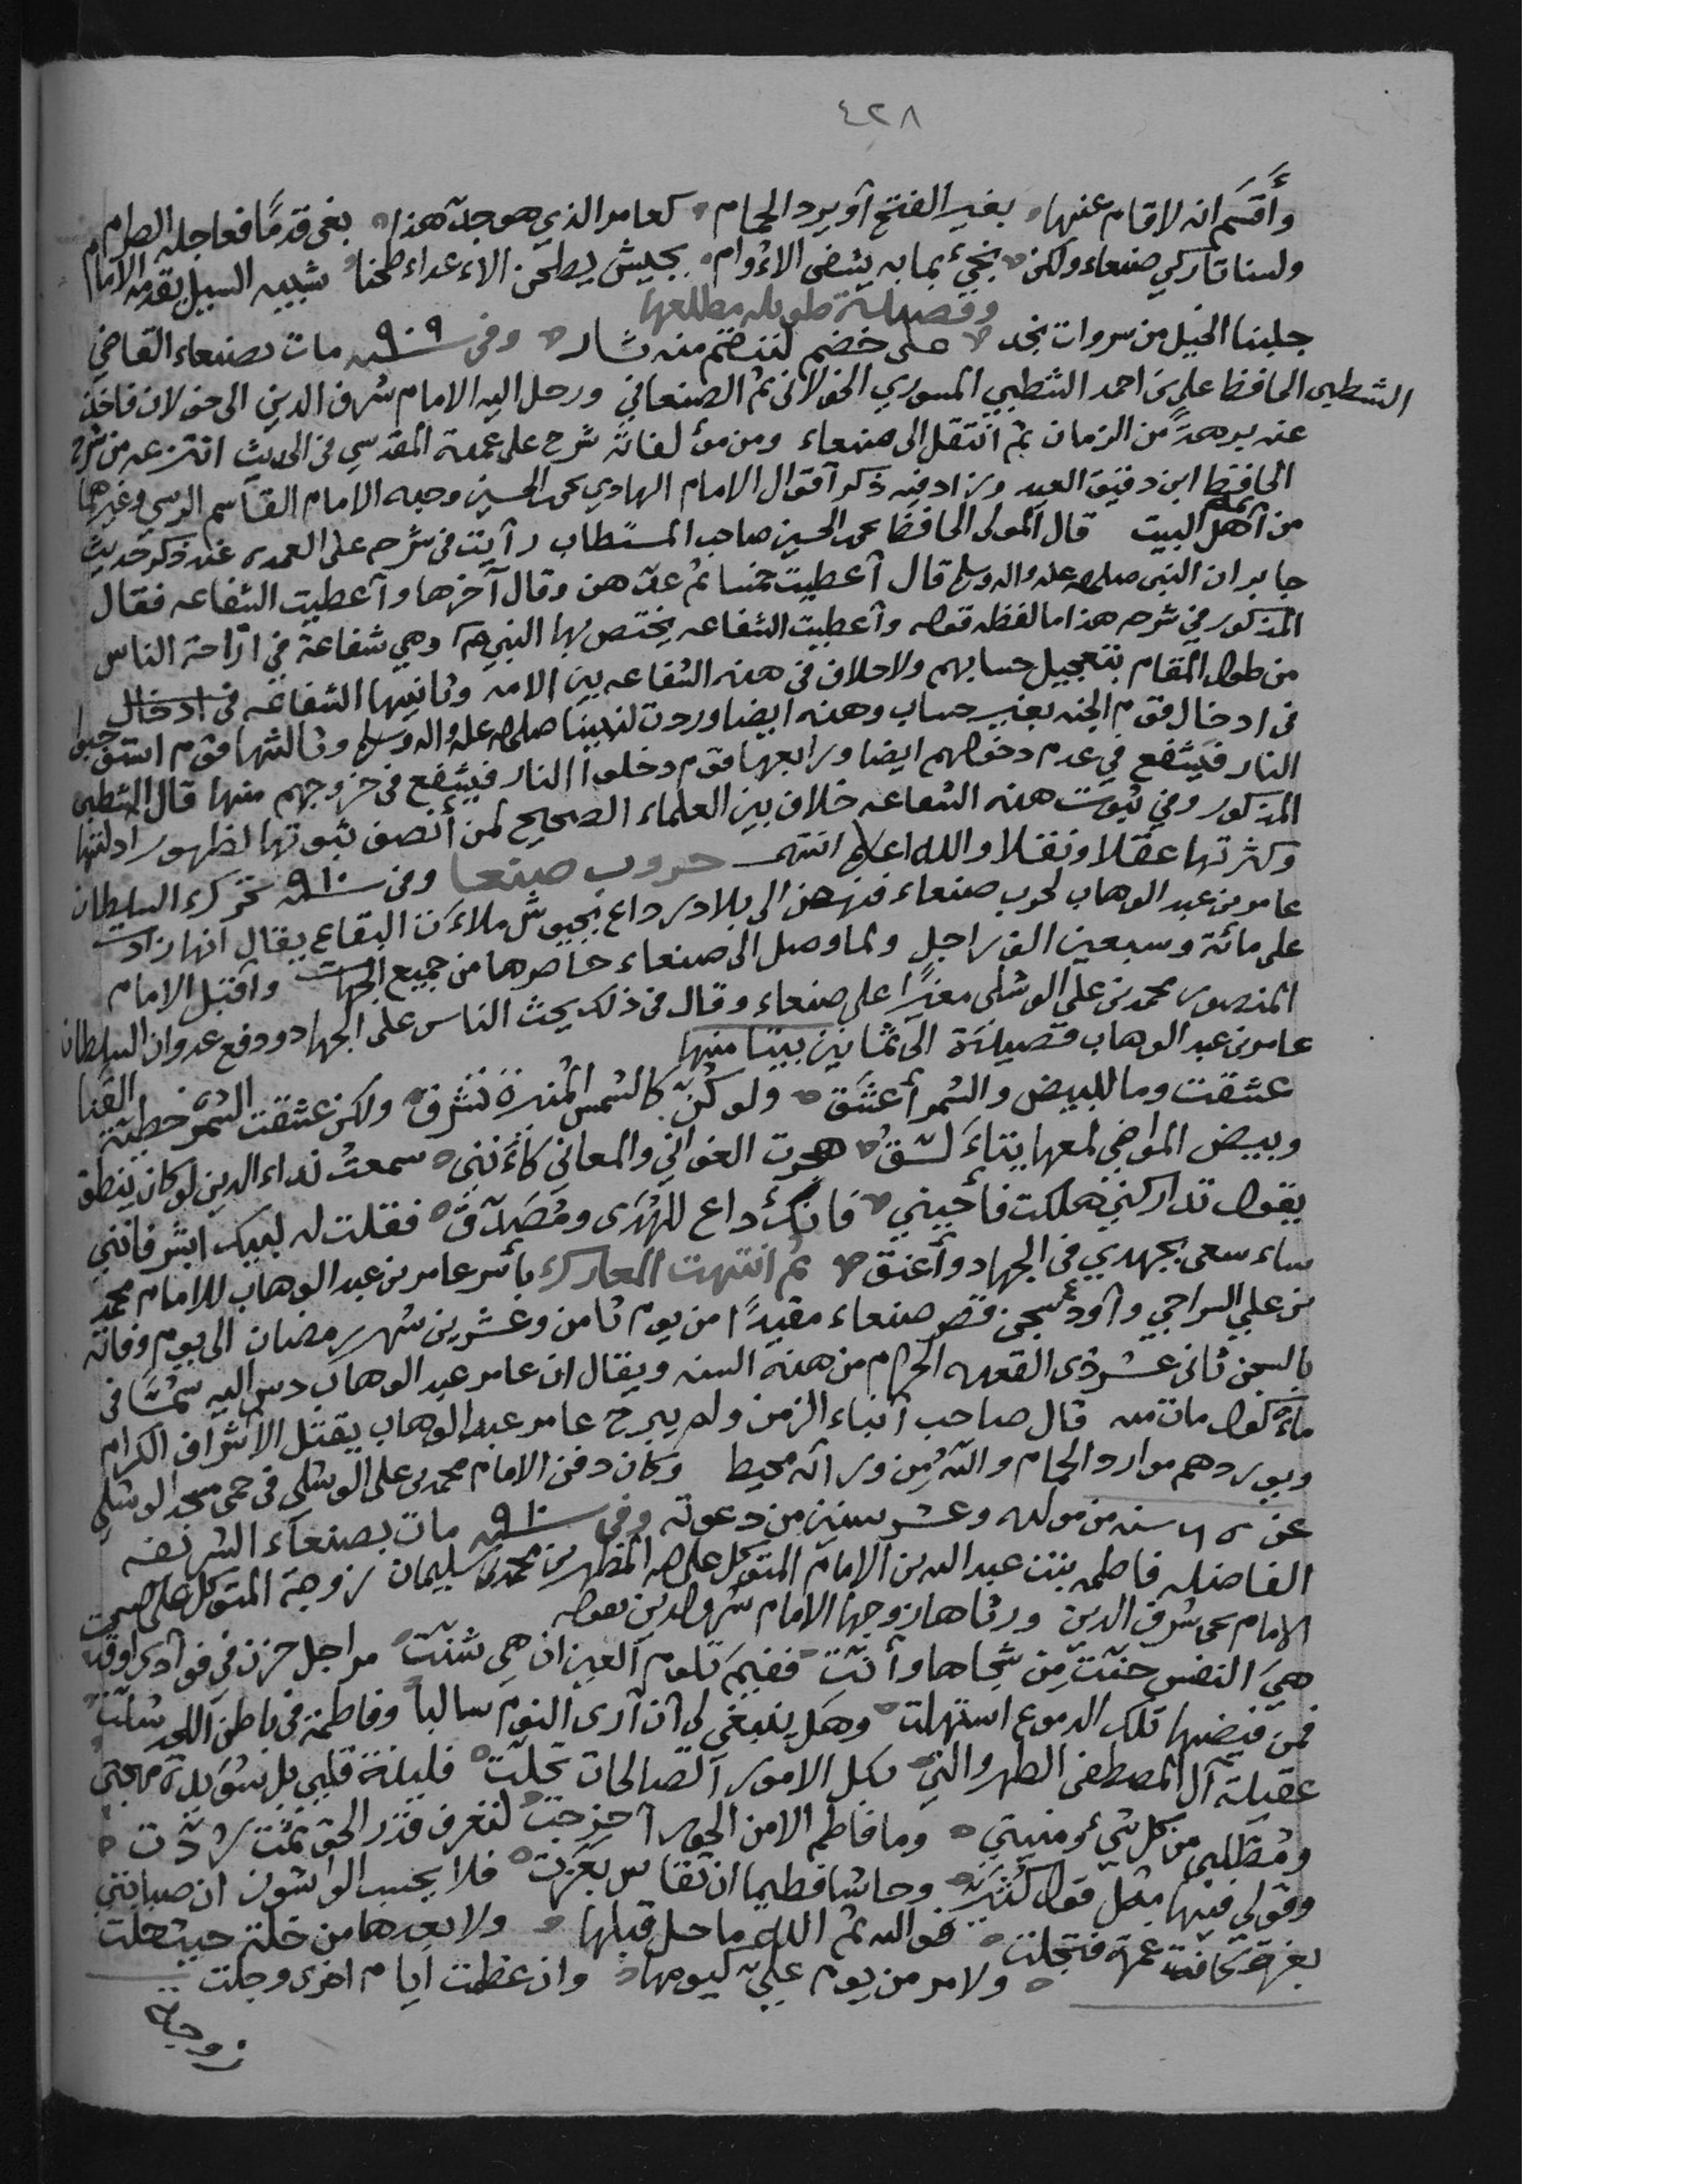 ٤٢٨
وأقسم انه لاقام عنها بغير الفتح أو يرد الحمام كعامر الذي هو جد هذا بغى قدمًا فعاجله الصرام
ولسنا تاركي صنعاء ولكن نجيء بما به يشفى الاوام بجيش يطحن الاعداء طحنا شبيه السيل يقدمه الامام
وقصيدة طويله مطلعها
جلبنا الخيل من سروات نجد على خضم لننضم منه ثار وفي سنه ٩٠٩ مات بصنعاء القاضي
الشظبى الحافظ علي بن احمد الشظبي المسوري الخولانى ثم الصنعاني ورحل اليه الامام شرف الدين الى خولان فاخذ
عنه برهةً من الزمان ثم انتقل الى صنعاء ومن مؤلفاته شرح على عمدة المقدسي فى الحديث انتزعه من شرح
الحافظ ابن دقيق العيد وزاد فيه ذكر آقوال الامام الهادي يحى الحسين وجده الامام القاسم الرسي وغيرهما
من آهل البيت قال المولى الحافظ يحى الحسين صاحب المستطاب رآيت فى شرحه على العمده عند ذكر حديث
جابر ان النبى صلى الله عليه واله وسلم قال آعطيت خمسا ثم عدهن وقال آخرها وآعطيت الشفاعه فقال
المذكور في شرحه هذا ما لفظه قوله وآعطيت الشفاعه يختص بها النبي وهي شفاعة في ازاحة الناس
من طول المقام بتعجيل حسابهم ولا خلاف فى هذه الشفاعه بين الامه وثانيها الشفاعه فى ادخال
فى ادخال قوم الجنه بغير حساب وهذه ايضا وردت لنبينا صلى الله عليه واله وسلم وثالثها قوم استوجبوا
النار فيشفع في عدم دخولهم ايضا ورابعها قوم دخلوا النار فيشفع فى خروجهم منها قال الشظبى
المذكور وفي ثبوت هذه الشفاعه خلاف بين العلماء الصحيح لمن أنصف ثبوتها لظهور ادلتها
وكثرتها عقلا ونقلا والله اعلم انتهى حروب صنعا وفى سنه ٩١٠ تحرك السلطان
عامر بن عبد الوهاب لحرب صنعاء فنهض الى بلاد رداع بجيوش ملاءت البقاع يقال انها زادت
على مائة وسبعين الف راجل ولما وصل الى صنعاء حاصرها من جميع الجهات وآقبل الامام
المنصور محمد بن علي الوشلى مغيرًا على صنعاء وقال فى ذلك يحث الناس على الجهاد ودفع عدوان السلطان
عامر بن عبد الوهاب قصيدة الى ثمانين بيتا منها
عشقت وما للبيض والسمر أعشق ولو كنّ كالشمس المنيرة تشرق ولكن عشقت السمر خطية القنا
وبيض المواضي لمعها يتاءلق هجرت الغواني والمعاني كاءنني سمعت نداء الدين لو كان ينطق
يقول تداركني هلكت فأحيني فانك داع للهدى ومصدق فقلت له لبيك ابشر فانني
ساء سعى بجهدي فى الجهاد وأعنق ثم انتهت المعارك بأسر عامر بن عبد الوهاب للامام محمد
بن علي السراجي وآودع سجن قصر صنعاء مقيدًا من يوم ثامن وعشرين شهر رمضان الى يوم وفاته
بالسجن ثانى عشر ذى القعده الحرام من هذه السنه ويقال ان عامر عبد الوهاب دس اليه سمًا فى
ماءكول مات منه قال صاحب آنباء الزمن ولم يبرح عامر عبد الوهاب يقتل الاشراف الكرام
ويوردهم موارد الحمام والله من ورائه محيط وكان دفن الامام محمد بن على الوشلى فى حمى مسجد الوشلي
عن ٦٥ سنه من مولده وعشر سنين من دعوته وفى سنه ٩١٠ مات بصنعاء الشريفه
الفاضله فاطمه بنت عبد الله بن الامام المتوكل على الله المطهر بن محمد بن سليمان زوجة المتوكل على الله يحى
الامام يحى شرف الدين ورثاها زوجها الامام شرف الدين بقوله
هي النفس حنّت من شجاها وأنّت ففيم تلوم العين ان هي شنت مراجل حزن في فوآدي اوقدت
فمن فيضها تلك الدموع استهلت وهل ينبغي لي ان آرى النوم سالبا وفاطمة فى باطن اللحد سلت
عقيلة آل المصطفى الطهر والتي بكل الامور الصالحات تحلت فليذة قلبي بل سويدة مهجتى
ومطلبي من كل شيء ومنيتي وما فاطم الا من الحور آخرجت لنعرف قدر الحق ثمت ردت
وقولي فيها مثل قول كثير وحاشا فطيما ان تقاس بعزة فلا يحسب الواشون ان صبابتي
بغرة كانت غمرة فتجلت فوالله ثم الله ما حل قبلها ولا بعدها من خلة حيث حلت
ولا مر من يوم علي كيومها وان عظمت ايام اخرى وجلت
زوجة